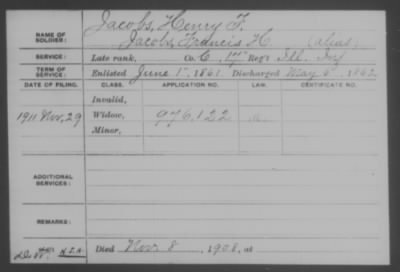 Jacobs, Henry F.
NAME OF SOLDIER: Jacobs, Francis H. (alias)
SERVICE: Late rank, Co. C, 17" Reg't Ill. Inf
TERM OF SERVICE: Enlisted June 1", 1861 Discharged May 8", 1862
DATE OF FILING. CLASS. APPLICATION NO. LAW. CERTIFICATE NO.
Invalid,
1911 Nov. 29 Widow, 976,122
Minor,
ADDITIONAL SERVICES:
REMARKS:
Died Nov. 8, 1908, at